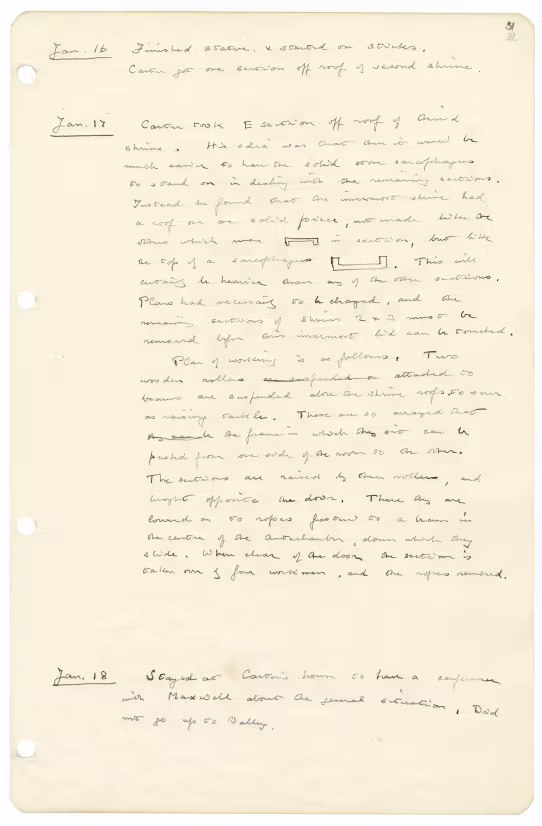 31
Jan. 16 Finished statue. & started on sticks.
Carter got one section off roof of second shrine.
Jan. 17 Carter took E section off roof of third
shrine. His idea was that then it would be
much easier to have the solid stone sarcophagus
to stand on in dealing with the remaining sections.
Instead he found that the innermost shrine had
a roof one solid piece, not made like the
others which were in section, but like
the top of a sarcophagus . This will
certainly be heavier than any of the other sections.
Plans had necessarily to be changed, and the
remaining sections of shrines 2 & 3 must be
removed before this innermost lid can be touched.
Plan of working is as follows. Two
wooden rollers are suspended on attached to
beams are suspended above the shrine roofs, to serve
as raising tackle. These are so arranged that
the frame in which they sit can be
pushed from one side of the room to the other.
The sections are raised by these rollers, and
brought opposite the door. There they are
lowered on to ropes fastened to a beam in
the centre of the Antechamber, down which they
slide. When clear of the door the section is
taken over by four workmen, and the ropes removed.
Jan. 18 Stayed at Carter's house to have a conference
with Maxwell about the general situation. Did
not go up to Valley.